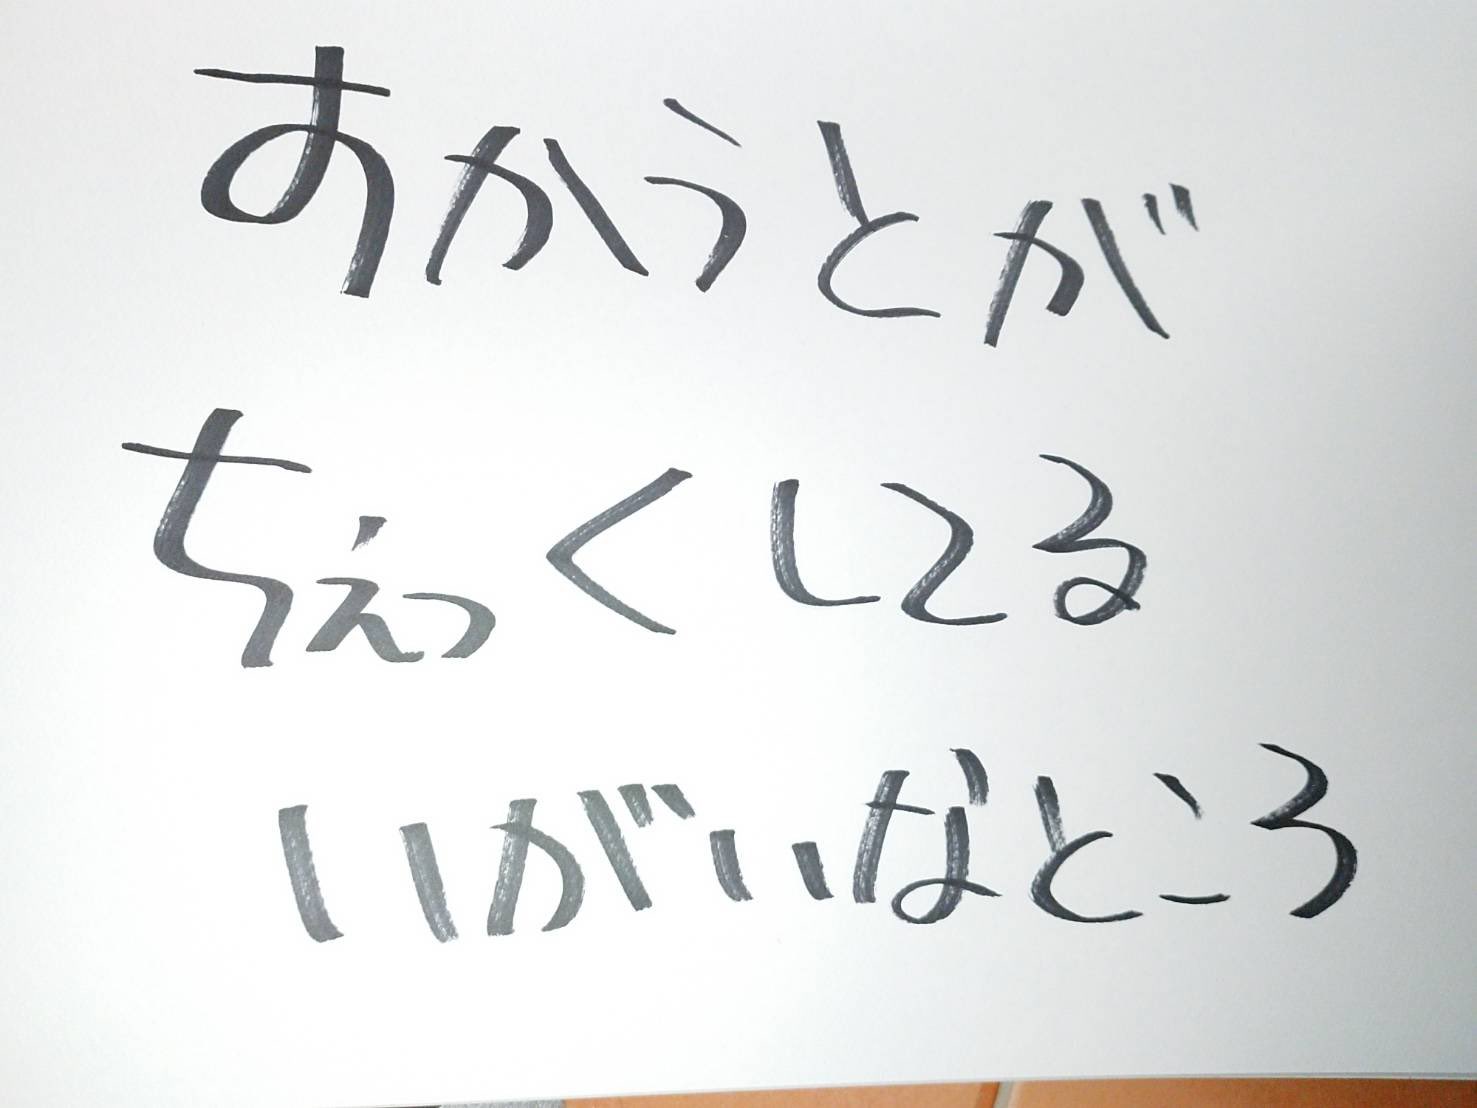 あかうとが
ちぇっくしてる
いがいなところ